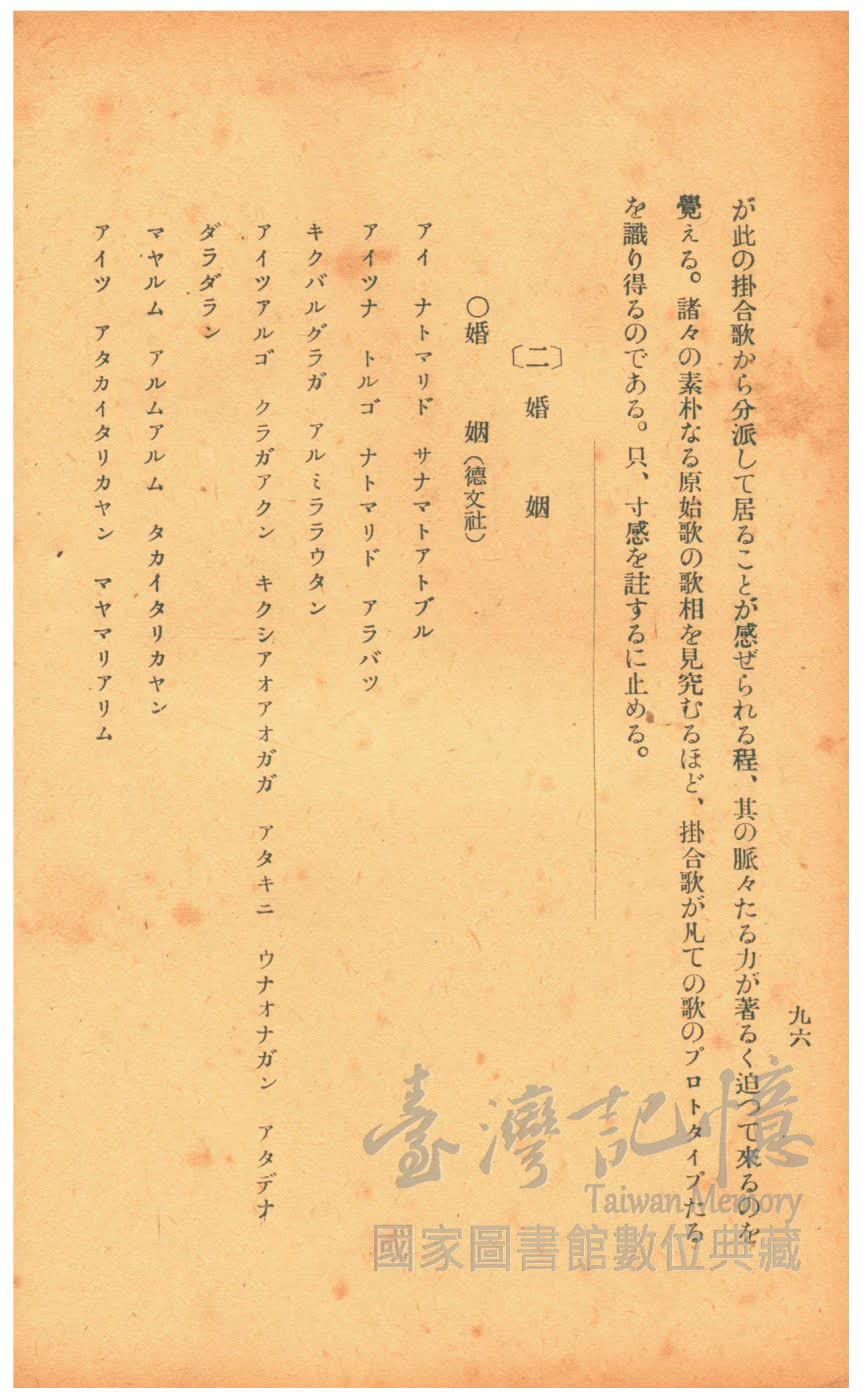 九六
が此の掛合歌から分派して居ることが感ぜられる程、其の脈々たる力が著るく迫つて來るのを
覺える。諸々の素朴なる原始歌の歌相を見究むるほど、掛合歌が凡ての歌のプロトタイプたる
を識り得るのである。只、寸感を註するに止める。
〔二〕婚姻
〇婚姻（德文社）
アイ ナトマリド サナマトアトブル
アイツナ トルゴ ナトマリド アラバツ
キクバルグラガ アルミララウタン
アイツアルゴ クラガアクン キクシアオアオガガ アタキニ ウナオナガン アタデナ
ダラダラン
マヤルム アルムアルム タカイタリカヤン
アイツ アタカイタリカヤン マヤマリアリム
臺灣記憶
Taiwan Memory
國家圖書館數位典藏